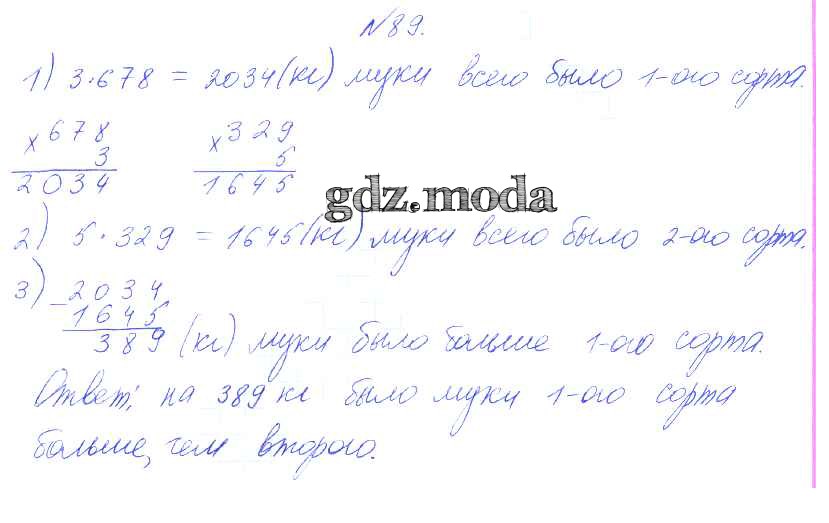 №89.
1) 3·678 = 2034(кг) муки всего было 1-ого сорта.
х 678 х 329
3 5
2034 1645
gdz.moda
2) 5·329 = 1645(кг) муки всего было 2-ого сорта.
3) - 2034
1645
389 (кг) муки было больше 1-ого сорта.
Ответ: на 389 кг было муки 1-ого сорта
больше, чем второго.